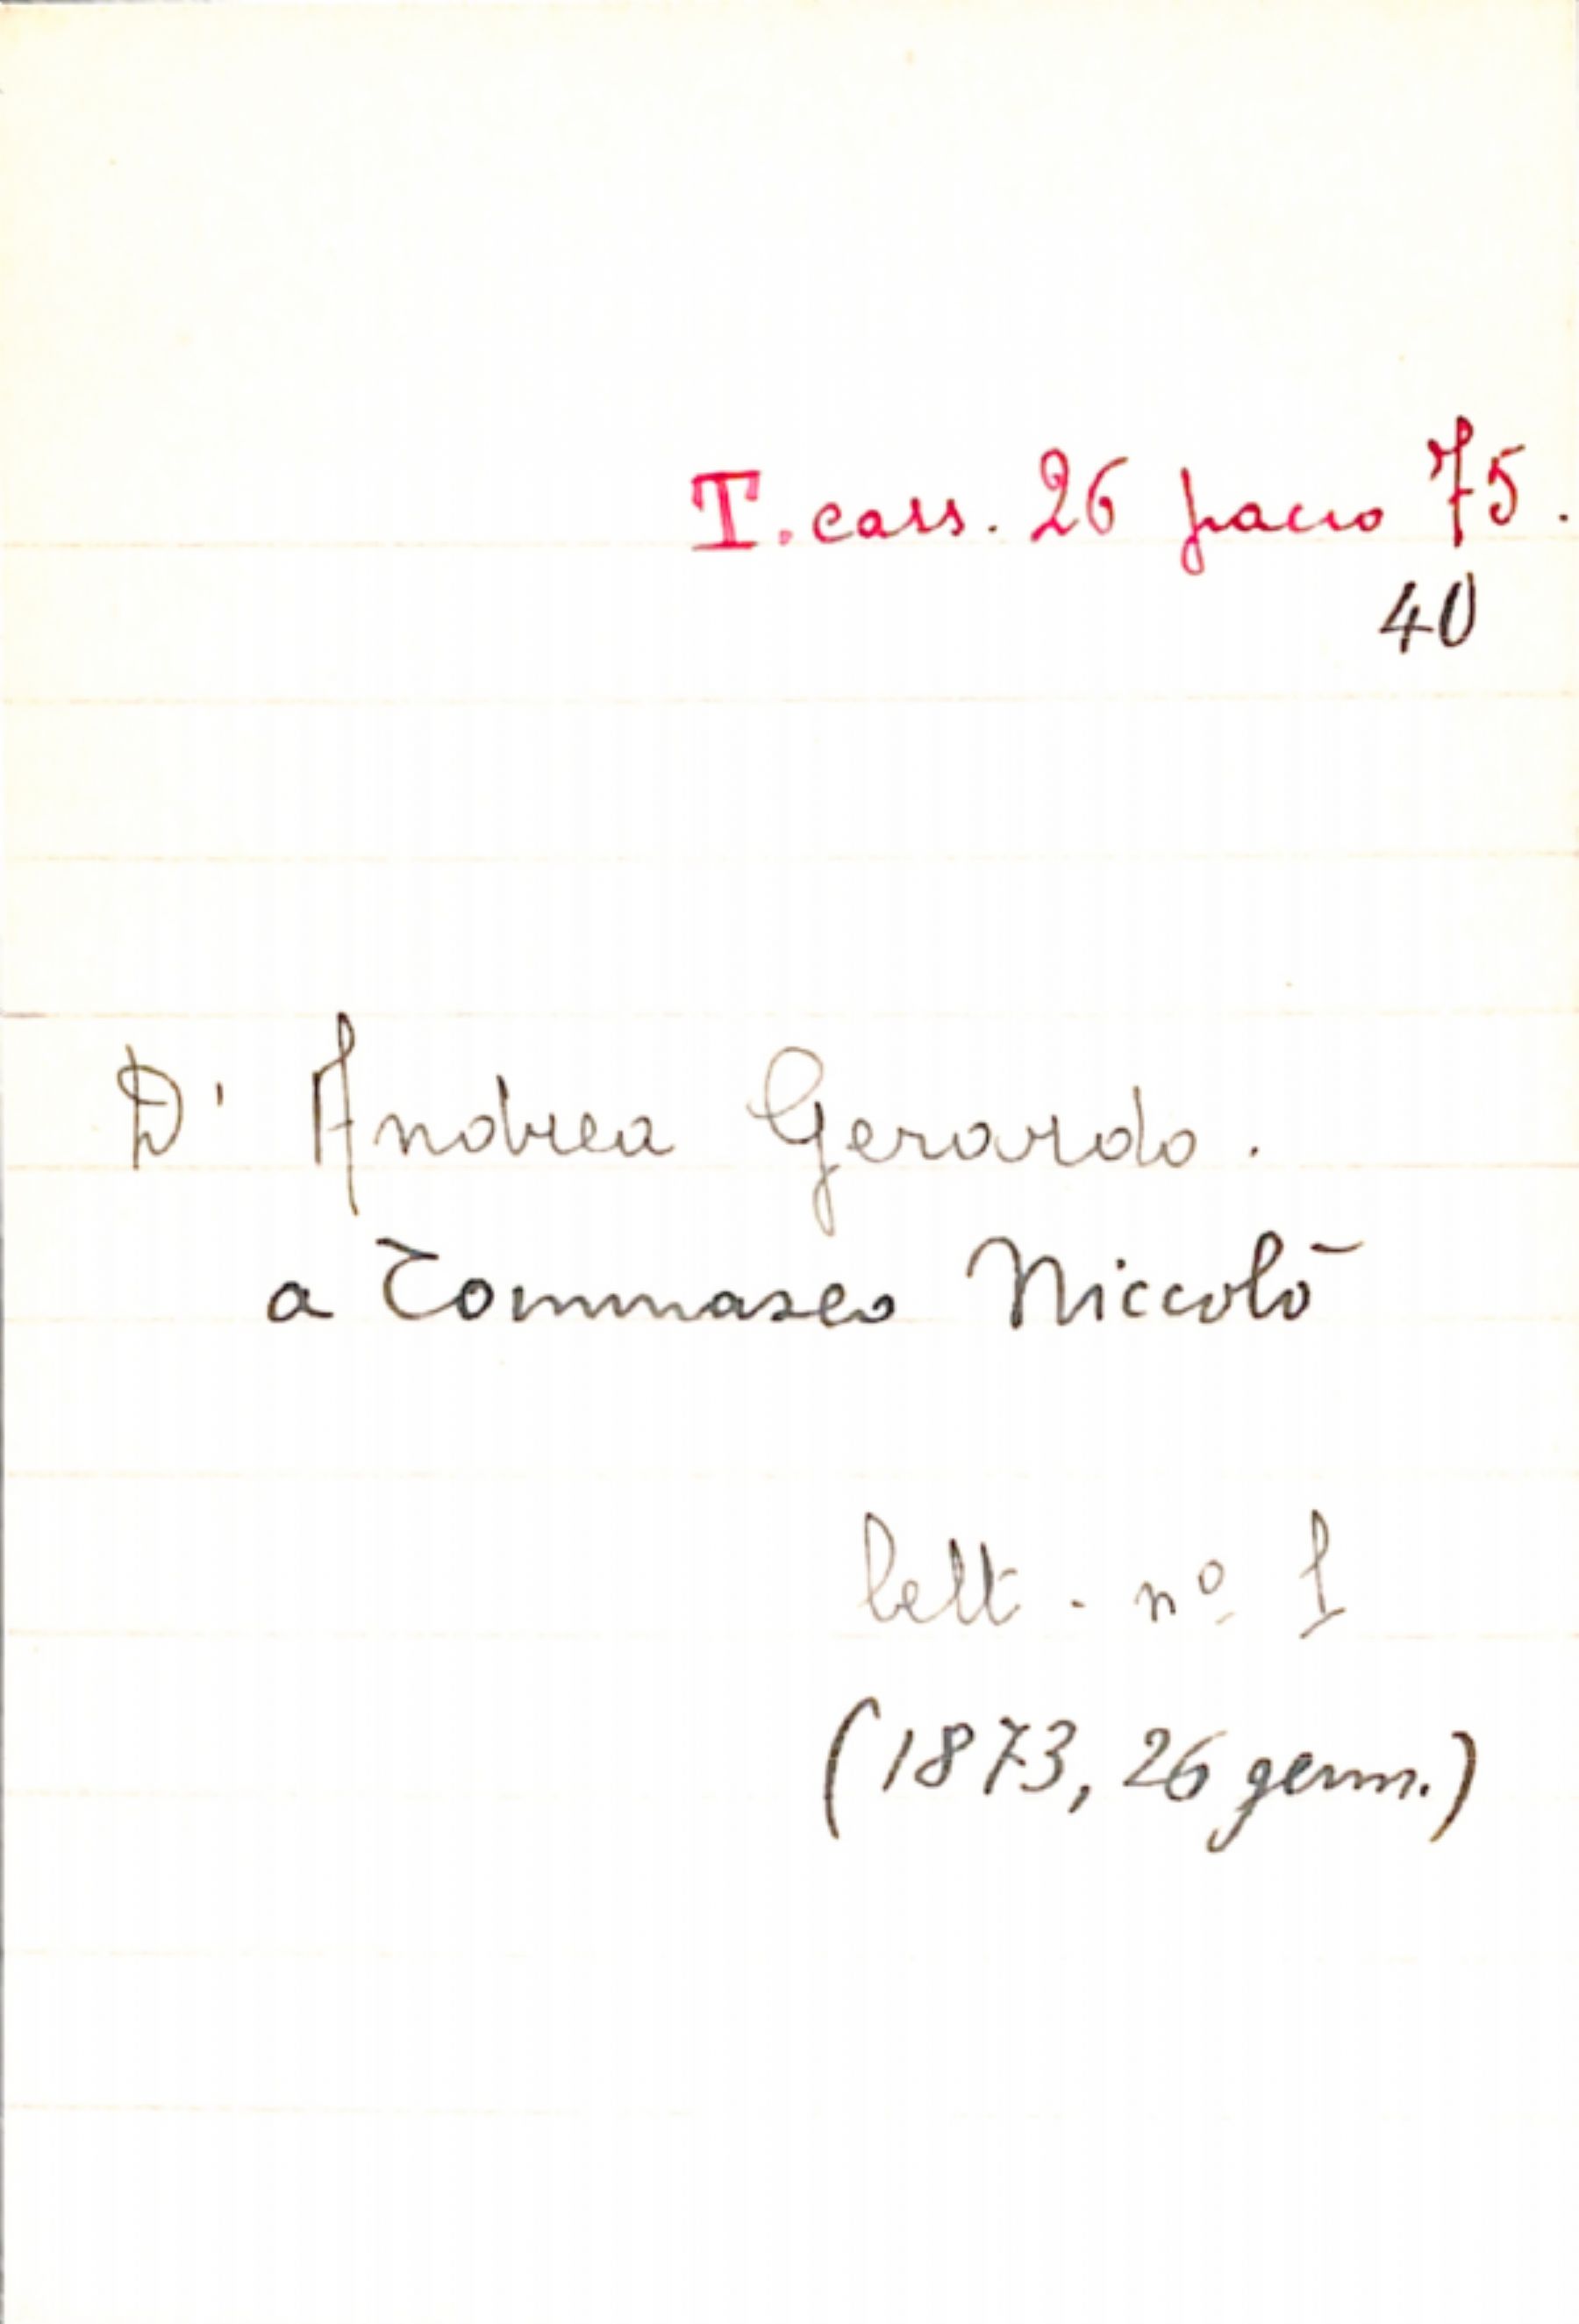 T. cass. 26 pacco 75.
40
D' Andrea Gerardo.
a Tommaseo Niccolò
lett. nº 1
(1873, 26 genn.)